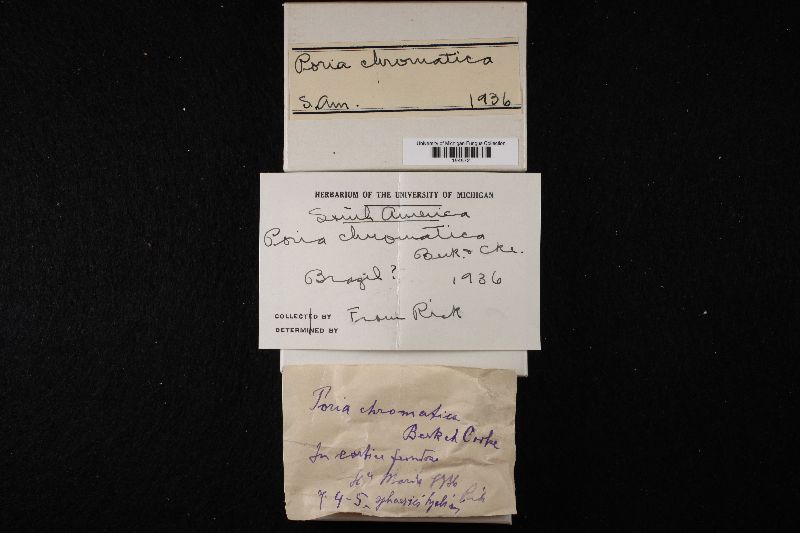 Poria chromatica
S. Am. 1936
University of Michigan Fungus Collection
HERBARIUM OF THE UNIVERSITY OF MICHIGAN
South America
Poria chromatica
Berk. & Cke.
Brazil? 1936
COLLECTED BY From Rick
DETERMINED BY
Poria chromatica
Berk et Cooke
In cortice frondoso
Maria 1936
4-5 Rick